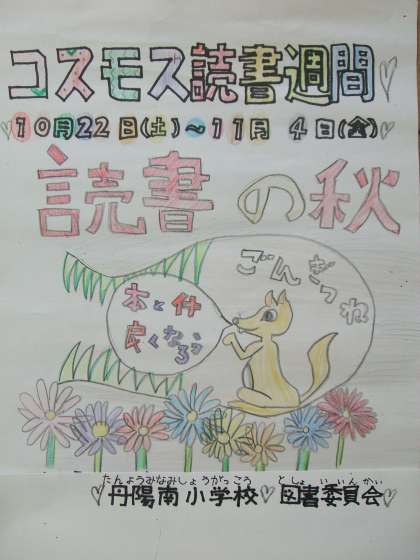 コスモス読書週間
10月22日(土)～11月4日(金)
読書の秋
ごんぎつね
本と仲
良くなろう
たんようみなみしょうがっこう としょいいんかい
丹陽南小学校 図書委員会